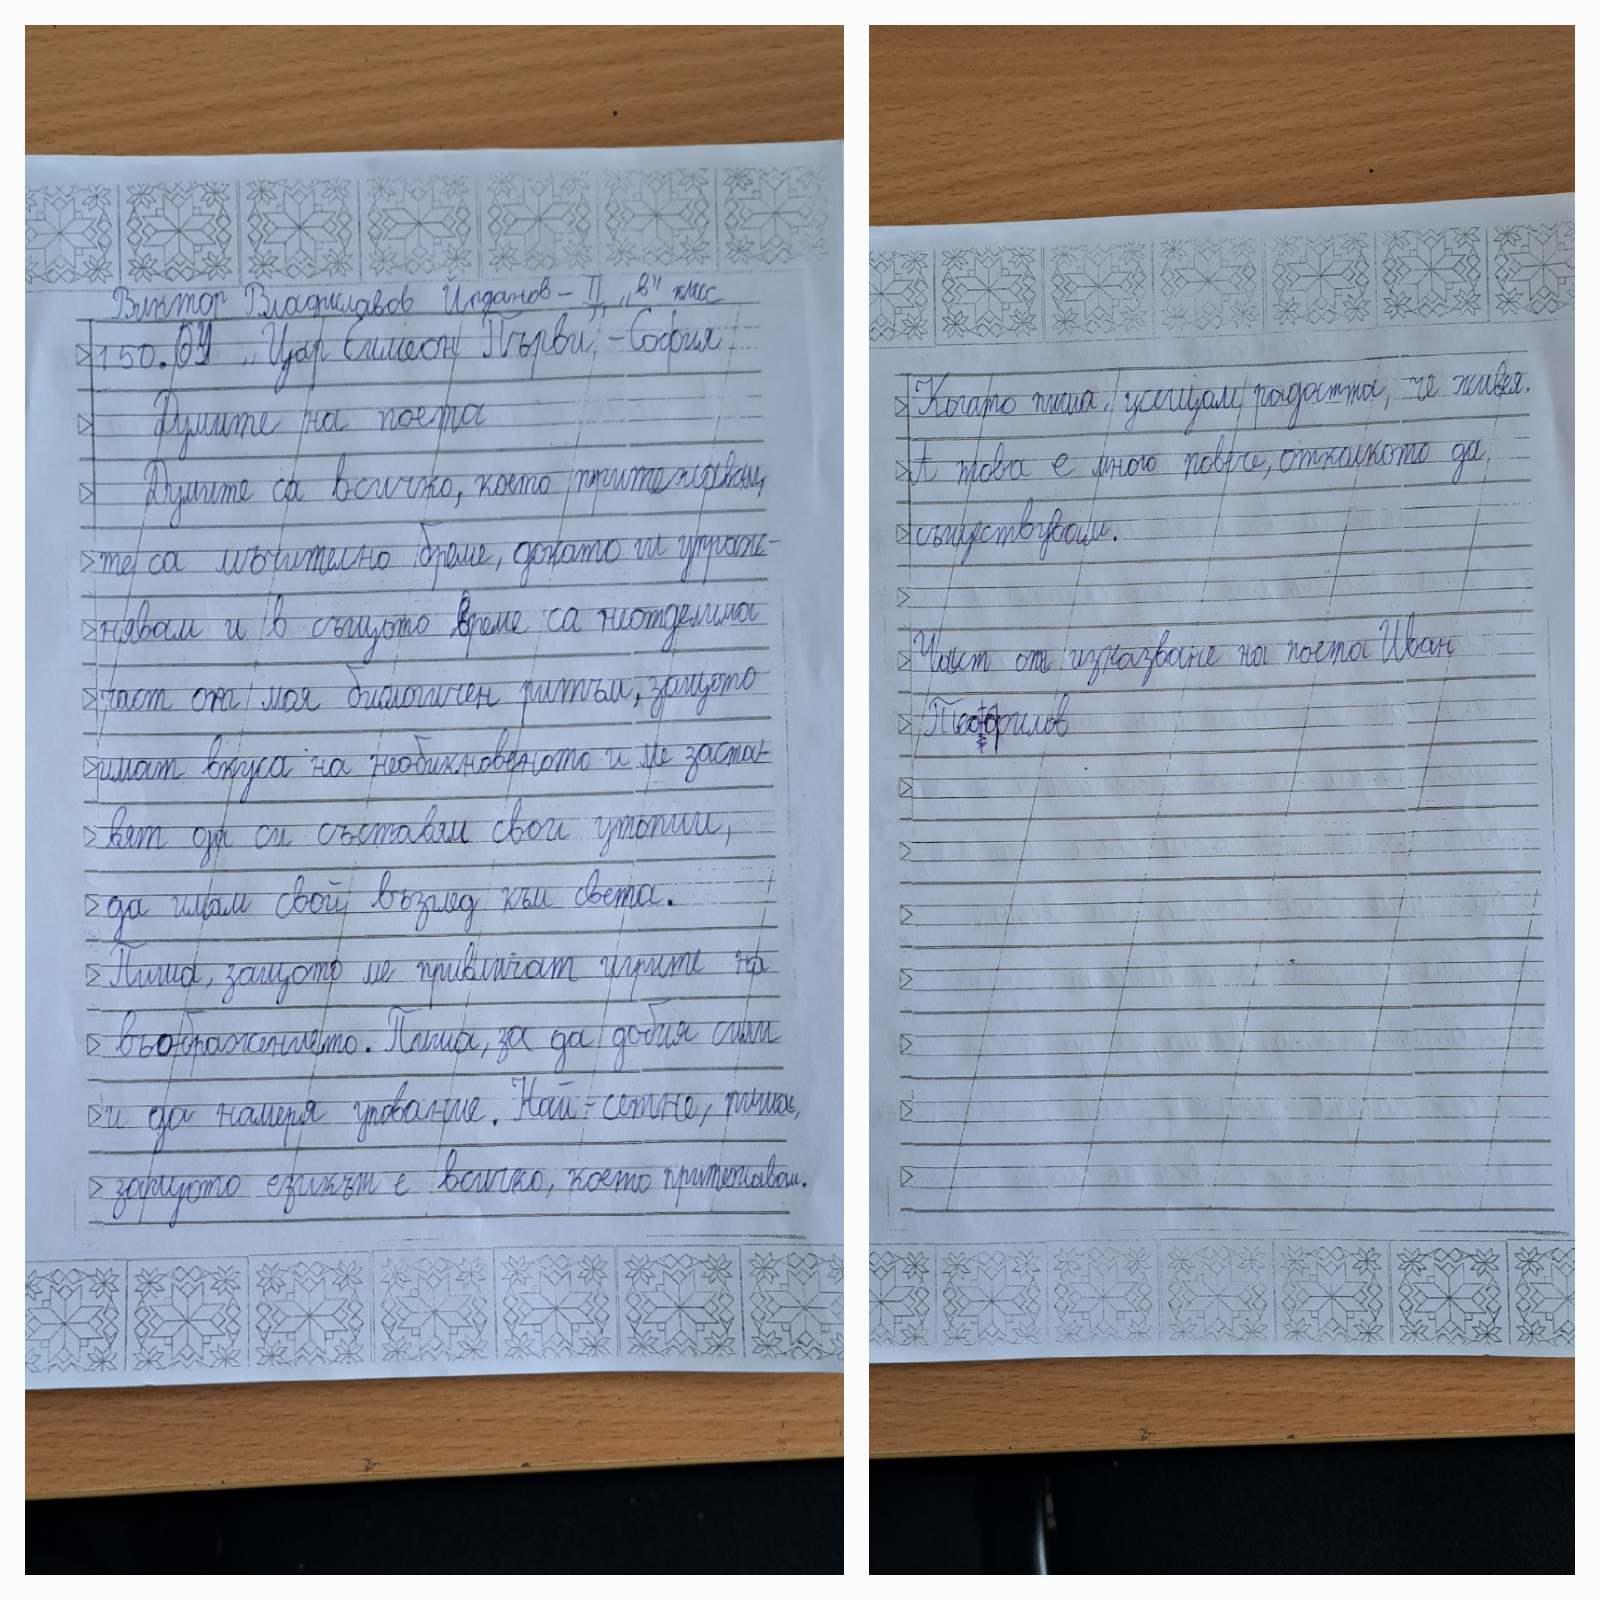 Виктор Владиславов Йорданов - II "в" клас
150. ОУ "Цар Симеон Първи" - София
Думите на поета
Думите са всичко, което притежавам,
те са мъчително бреме, докато ги упраж-
нявам и в същото време са неотделима
част от моя биологичен ритъм, защото
имат вкуса на необикновеното и ме заста-
вят да си съставям свои утопии,
да имам свой възглед към света.
Пиша, защото ме привличат игрите на
въображението. Пиша, за да добия сили
и да намеря упование. Най-сетне, пиша,
защото езикът е всичко, което притежавам.
Когато пиша, усещам радостта, че живея.
А това е много повече, отколкото да
съществувам.
Част от изказване на поета Иван
Теофилов